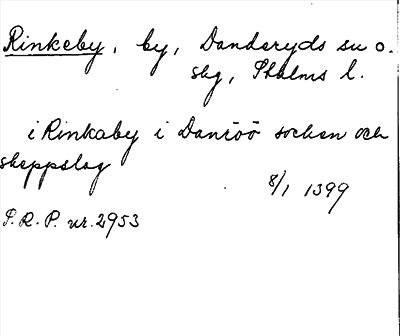 Rinkeby, by, Danderyds sn o.
skg, Sthlms l.
i Rinkaby i Danröö sochen och
skeppslag
8/1 1399
P.R.P. nr. 2953